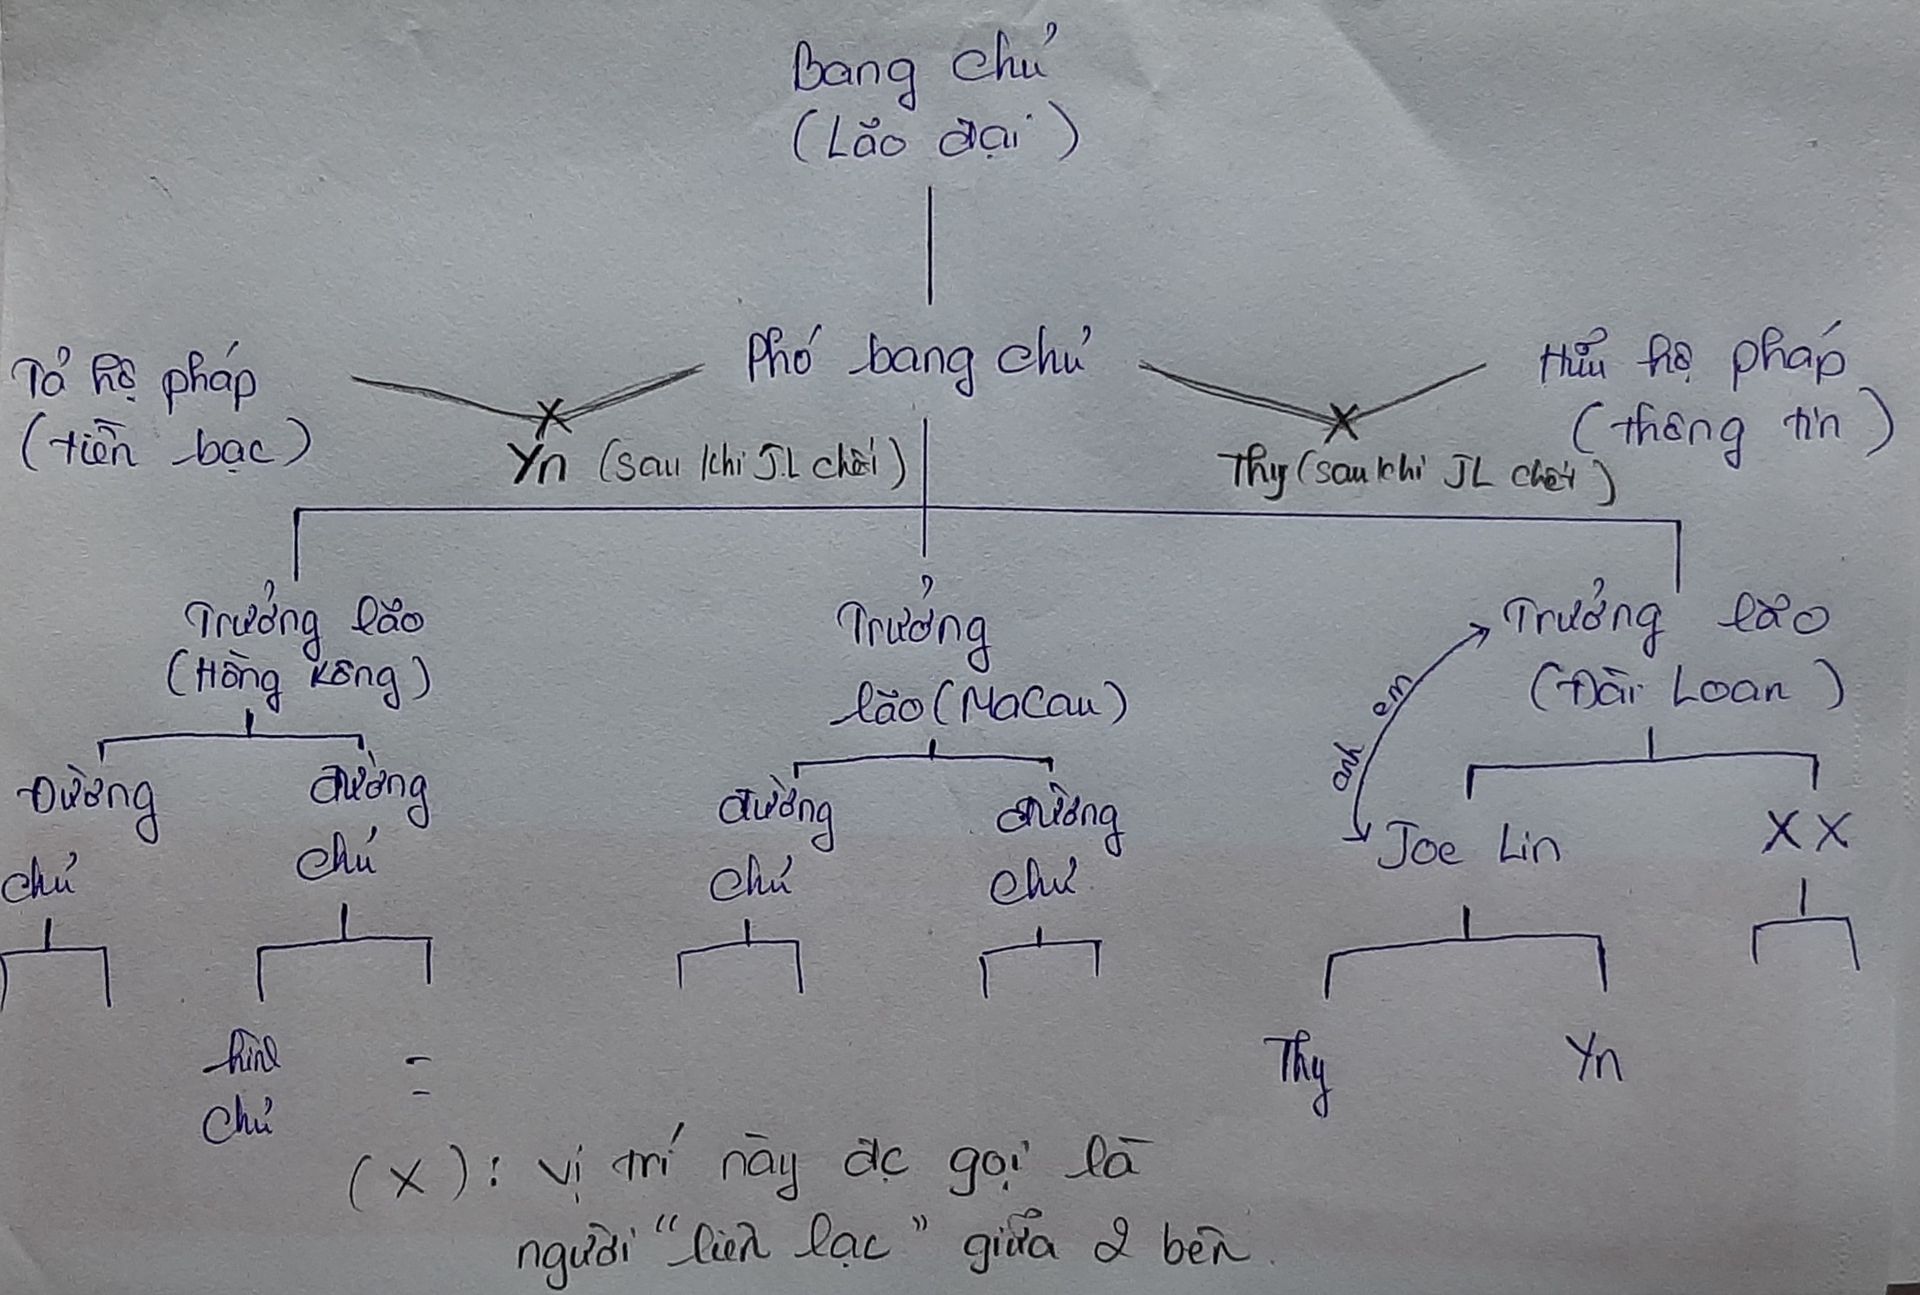 Bang chủ
(Lão đại)
Tả hộ pháp
(tiền bạc)
Phó bang chủ
Hữu hộ pháp
(thông tin)
X
Yn (sau khi JL chết)
X
Thy (sau khi JL chết)
Trưởng lão
(Hồng Kông)
Trưởng
lão (MaCau)
Trưởng lão
(Đài Loan)
anh em
Đường
chủ
đường
chủ
đường
chủ
đường
chủ
Joe Lin
XX
chủ
=
Thy
Yn
(X): vị trí này đc gọi là
người "liên lạc" giữa 2 bên.